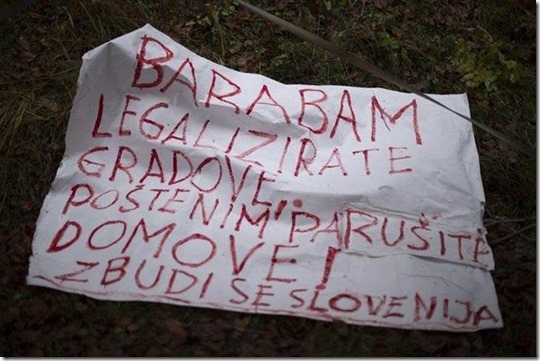 BARABAM
LEGALIZIRATE
GRADOVE,
POŠTENIM PA RUŠITE
DOMOVE!
ZBUDI SE SLOVENIJA